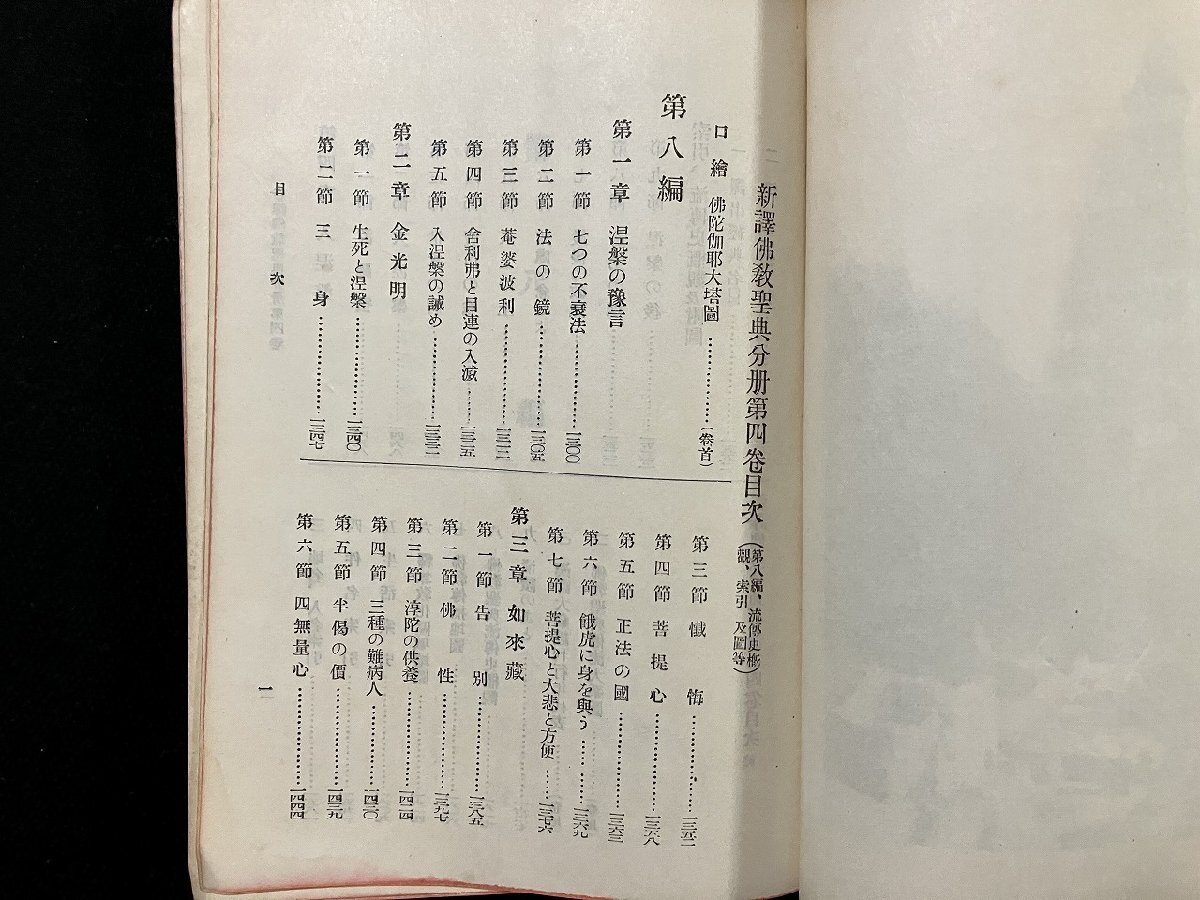 新譯佛敎聖典分册第四卷目次（第八編、流傳史概觀、索引及圖等）
口繪 佛陀伽耶大塔圖…………（卷首）
第八編
第一章 涅槃の豫言
第一節 七つの不衰法…………一三〇〇
第二節 法の鏡…………一三〇五
第三節 菴婆波利…………一三一二
第四節 舍利弗と目連の入滅……一三二五
第五節 入涅槃の誡め…………一三三二
第二章 金光明
第一節 生死と涅槃…………一三四〇
第二節 三身…………一三四七
第三節 懺悔…………一三五二
第四節 菩提心…………一三五八
第五節 正法の國…………一三六三
第六節 餓虎に身を與う…………一三六九
第七節 菩提心と大悲と方便……一三七六
第三章 如來藏
第一節 告別…………一三八五
第二節 佛性…………一三九七
第三節 淳陀の供養…………一四一四
第四節 三種の難病人…………一四二〇
第五節 半偈の價…………一四二九
第六節 四無量心…………一四四四
目次
一